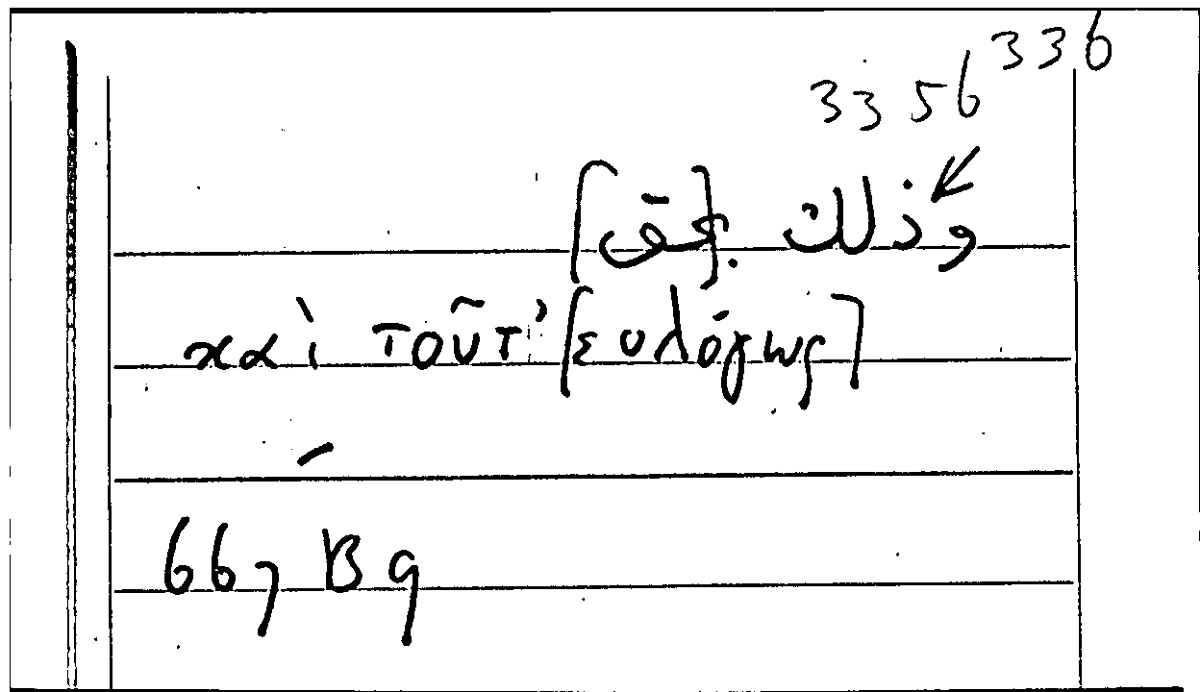 336
3356
وذلك [بحق]
καὶ τοῦτ’ [εὐλόγως]
667 B 9